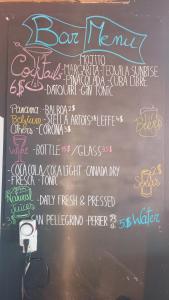 Bar Menu
MOJITO
Cocktails -MARGARITA -TEQUILA SUNRISE
-PINACOLADA -CUBA LIBRE
6$ -DAIQUIRI -GIN TONIC
Panama -BALBOA 2$
Belgium -STELLA ARTOIS -LEFFE 4$
Others -CORONA 3$
Beers
Wine -BOTTLE /GLASS 3$
-COCA COLA/COCA LIGHT -CANADA DRY
-FRESCA -TONIC
Sodas
2$
Natural Juices -DAILY FRESH & PRESSED
SAN PELLEGRINO -PERIER
Water